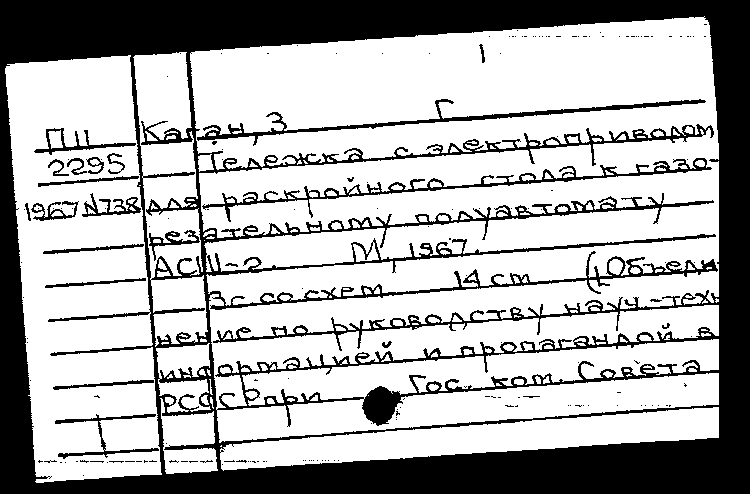 1
П11 Каган, З Г
2295 Тележка с электроприводом
1967 N738 для раскройного стола к газо-
резательному полуавтомату
АСШ-2. М, 1967.
3с со схем. 14 cm (Объеди-
нение по руководству науч-техн
информацией и пропагандой в
РСФСР при Гос. ком. Совета